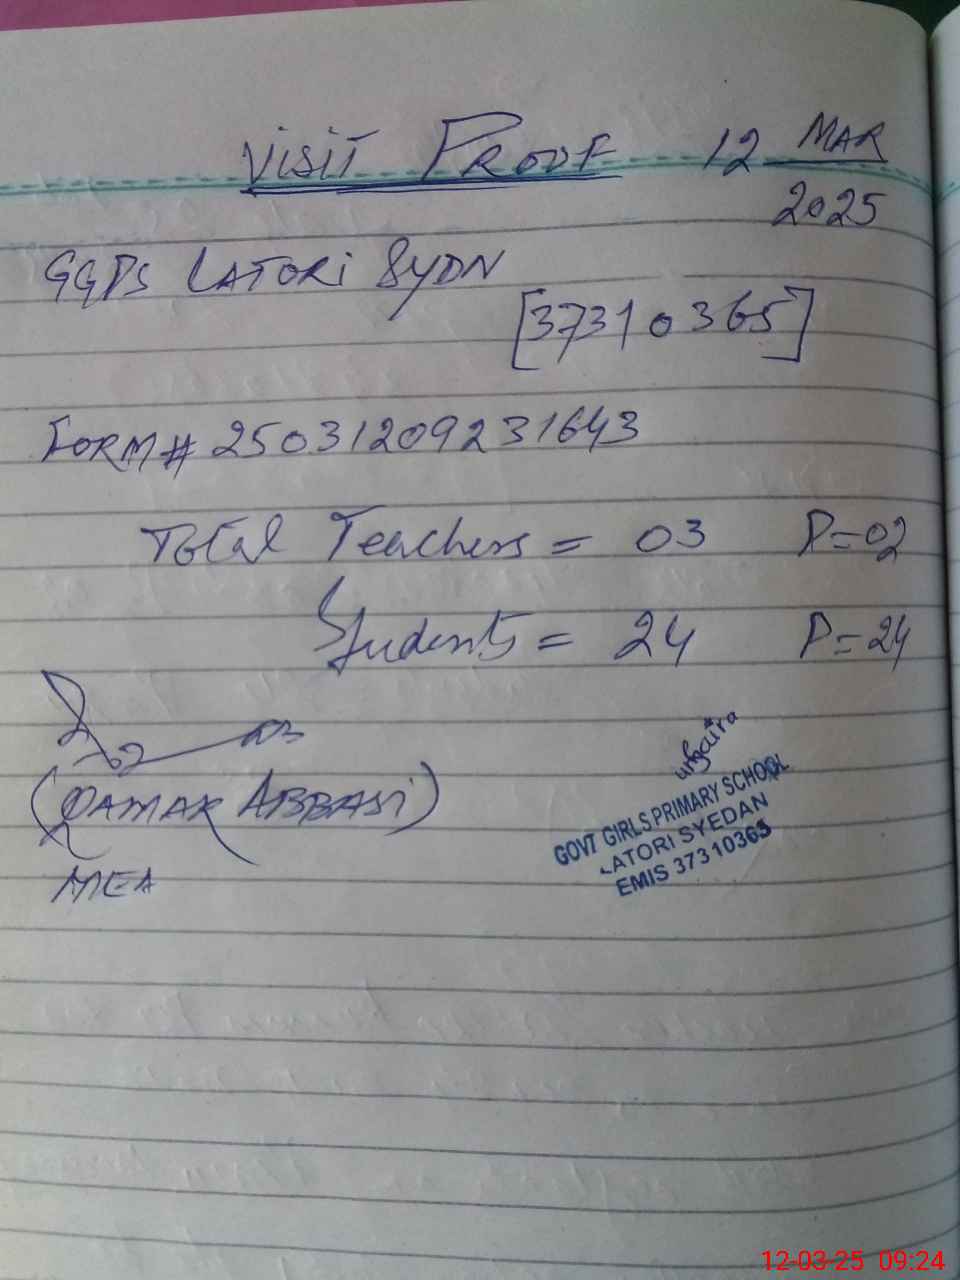 VISIT PROOF 12 MAR
2025
GGPS LATORI SYDN
[37310365]
FORM# 25031209231643
Total Teachers = 03 P=02
Students = 24 P=24
(QAMAR ABBASI)
MEA
GOVT GIRLS PRIMARY SCHOOL
LATORI SYEDAN
EMIS 37310365
12-03-25 09:24